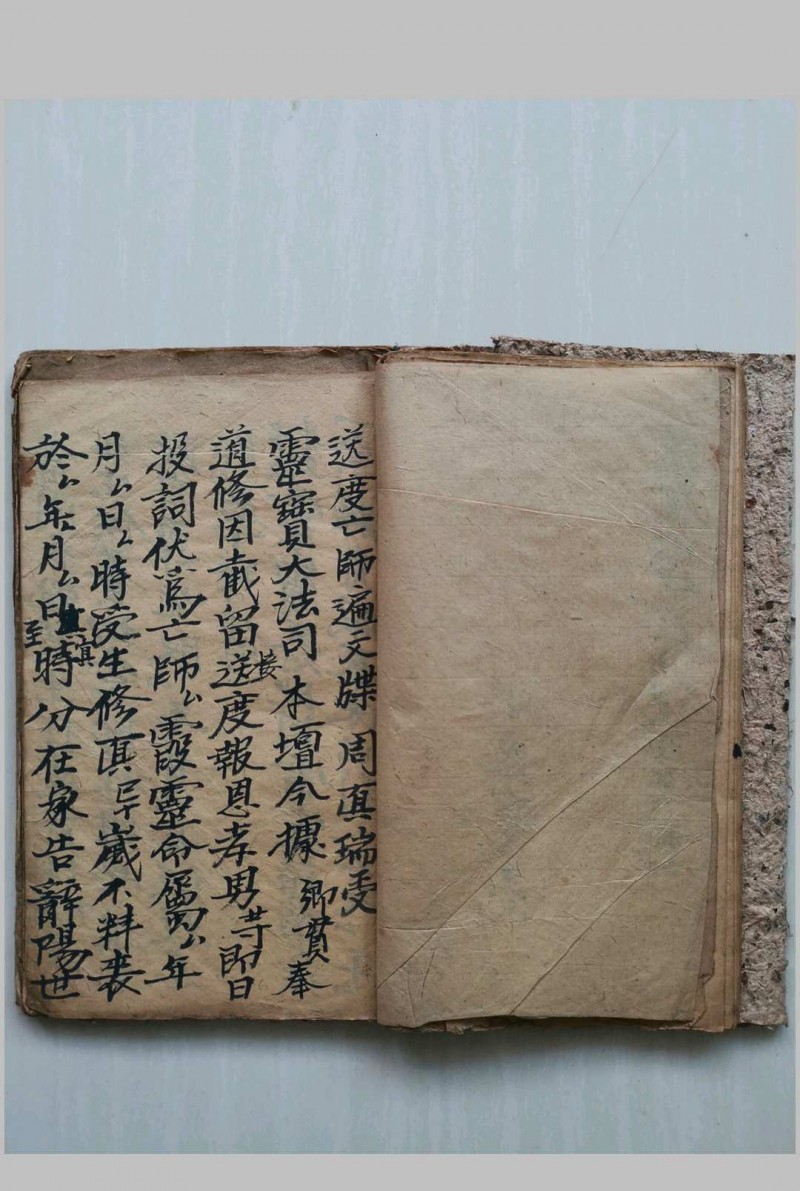 送度亡師遍文牒 周真瑞受
靈寳大法司 本壇今據 鄉貫奉
道修因截留送接度報恩孝男等即日
投詞伏為亡師厶霞靈命屬厶年
月厶日厶時受生修真 歲不料丧
於厶年月厶日至時分在家告辭陽世